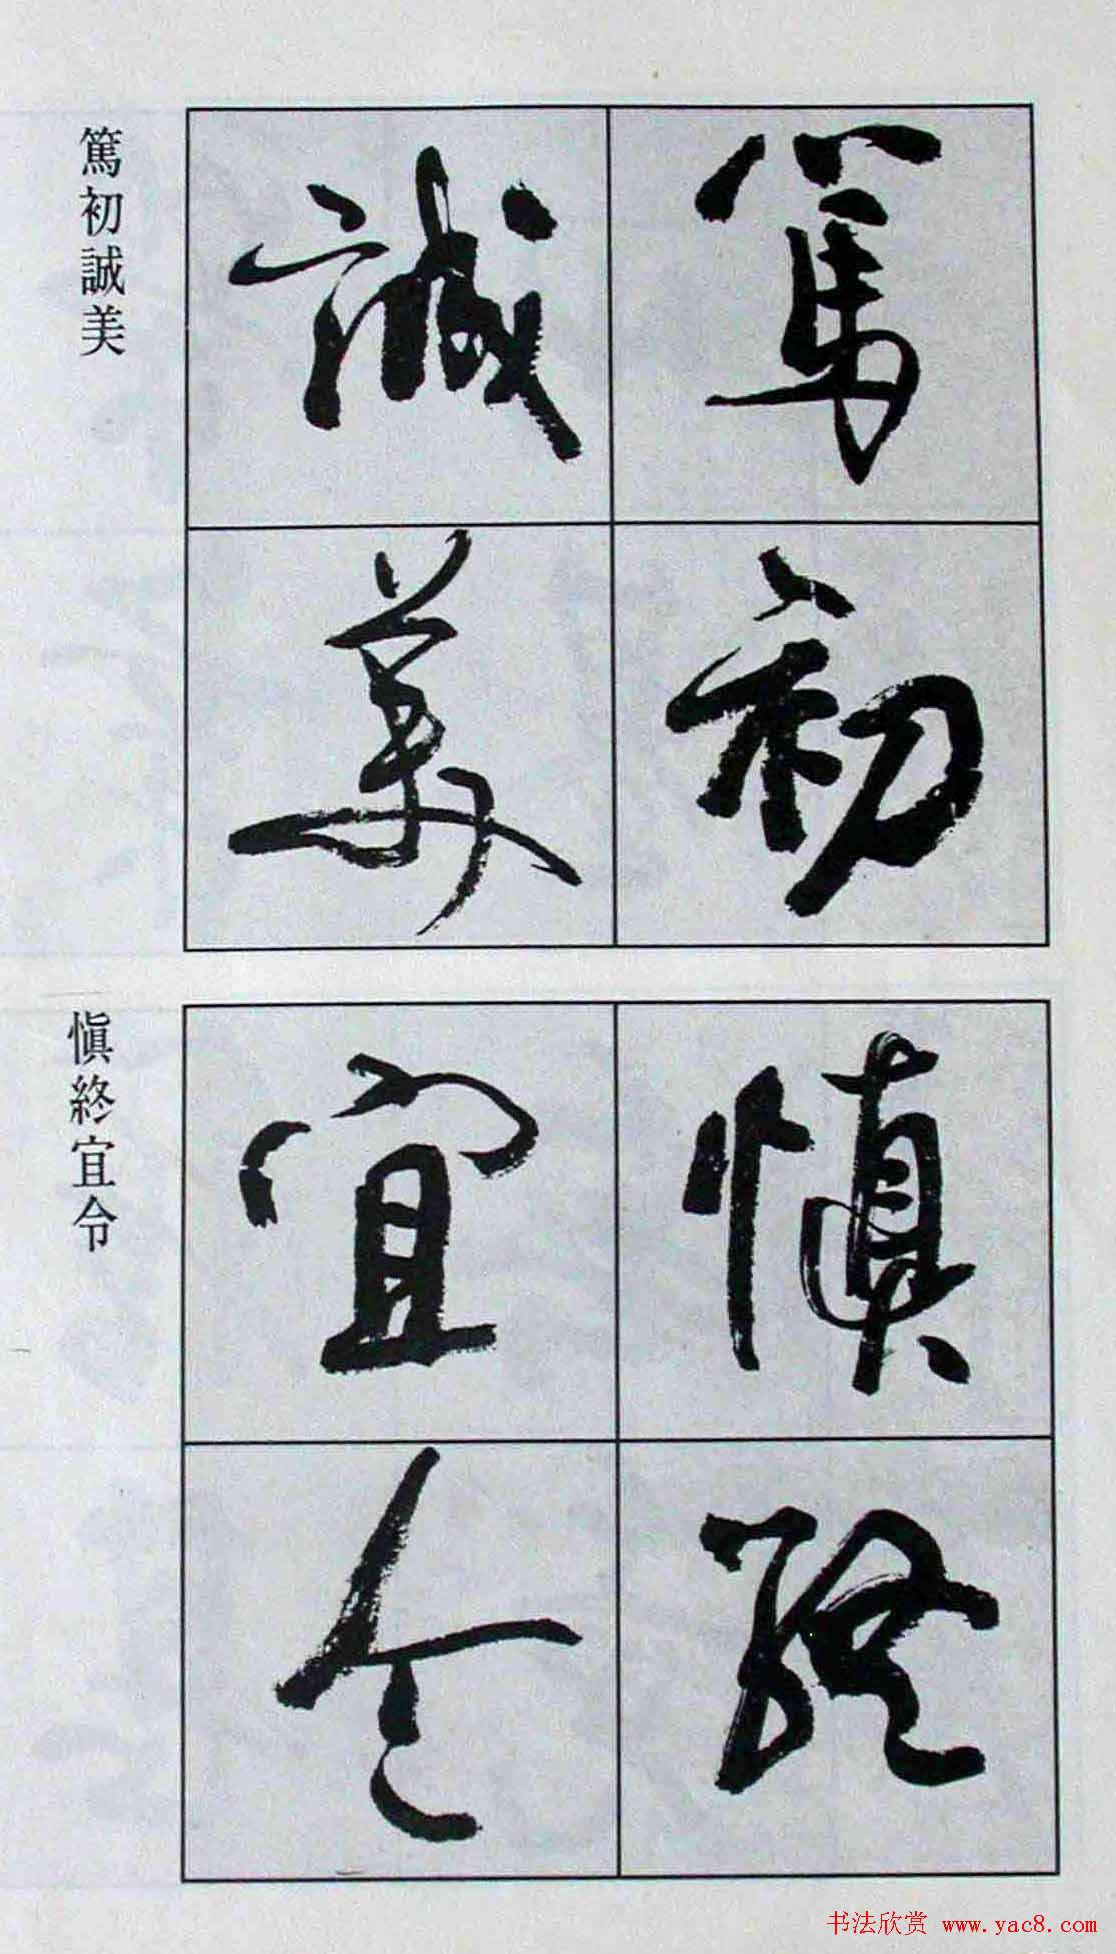 篤初
誠美
篤初誠美
慎終
宜令
慎終宜令
书法欣赏 www.yac8.com